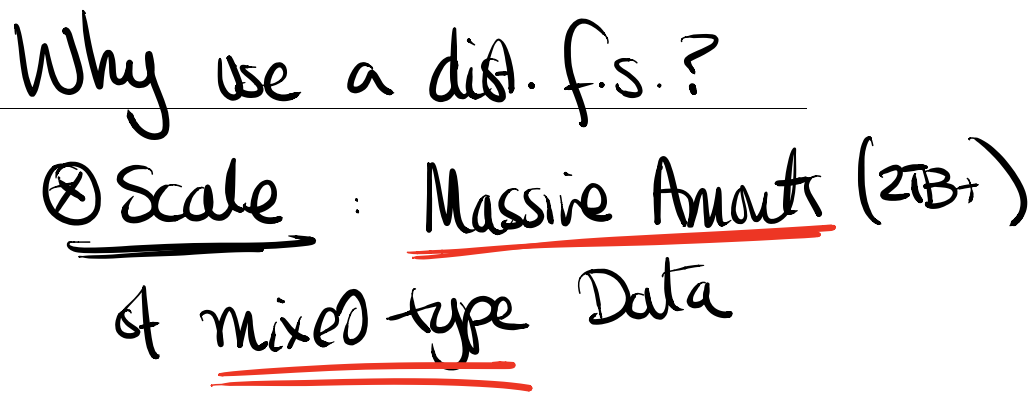 Why use a dist. f.s.?
⊗ Scale : Massive Amouts (2TB+)
of mixed type Data